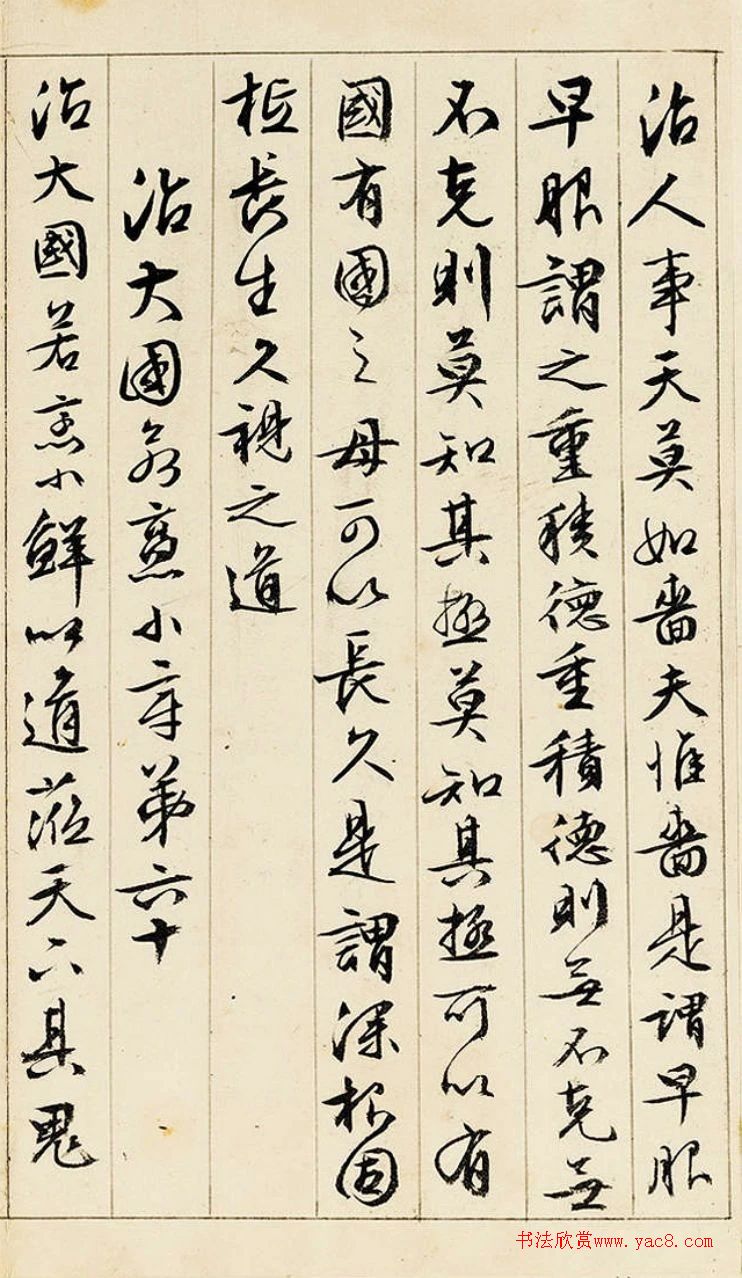 治人事天莫如嗇夫惟嗇是謂早服
早服謂之重積德重積德則無不克無
不克則莫知其極莫知其極可以有
國有國之母可以長久是謂深根固
柢長生久視之道
治大國若烹小章第六十
治大國若烹小鮮以道蒞天下其鬼
书法欣赏www.yac8.com